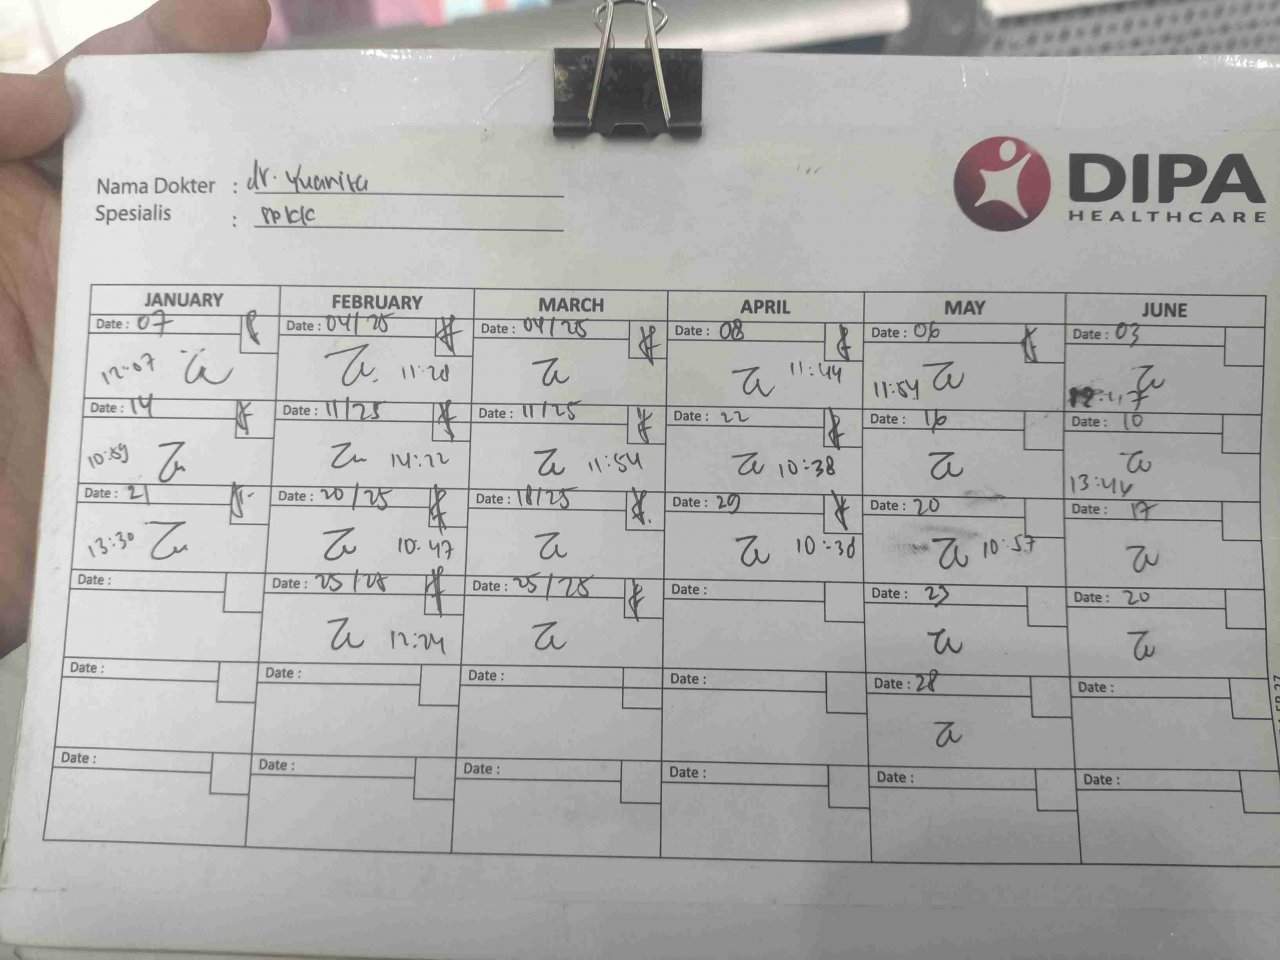 DIPA
HEALTHCARE
Nama Dokter : dr. Yuanita
Spesialis :
JANUARY FEBRUARY MARCH APRIL MAY JUNE
Date : 07 Date : 04/25 Date : 04/25 Date : 08 Date : 06 Date : 03
12:07 11:28 11:44 11:54
Date : 14 Date : 11/25 Date : 11/25 Date : 22 Date : 16 Date : 10
10:59 14:22 11:54 10:38 13:44
Date : 21 Date : 20/25 Date : 18/25 Date : 29 Date : 20 Date : 17
13:30 10:47 10:38 10:57
Date : Date : 25/25 Date : 25/25 Date : Date : 23 Date : 20
12:24
Date : Date : Date : Date : Date : 28 Date :
Date : Date : Date : Date : Date : Date :